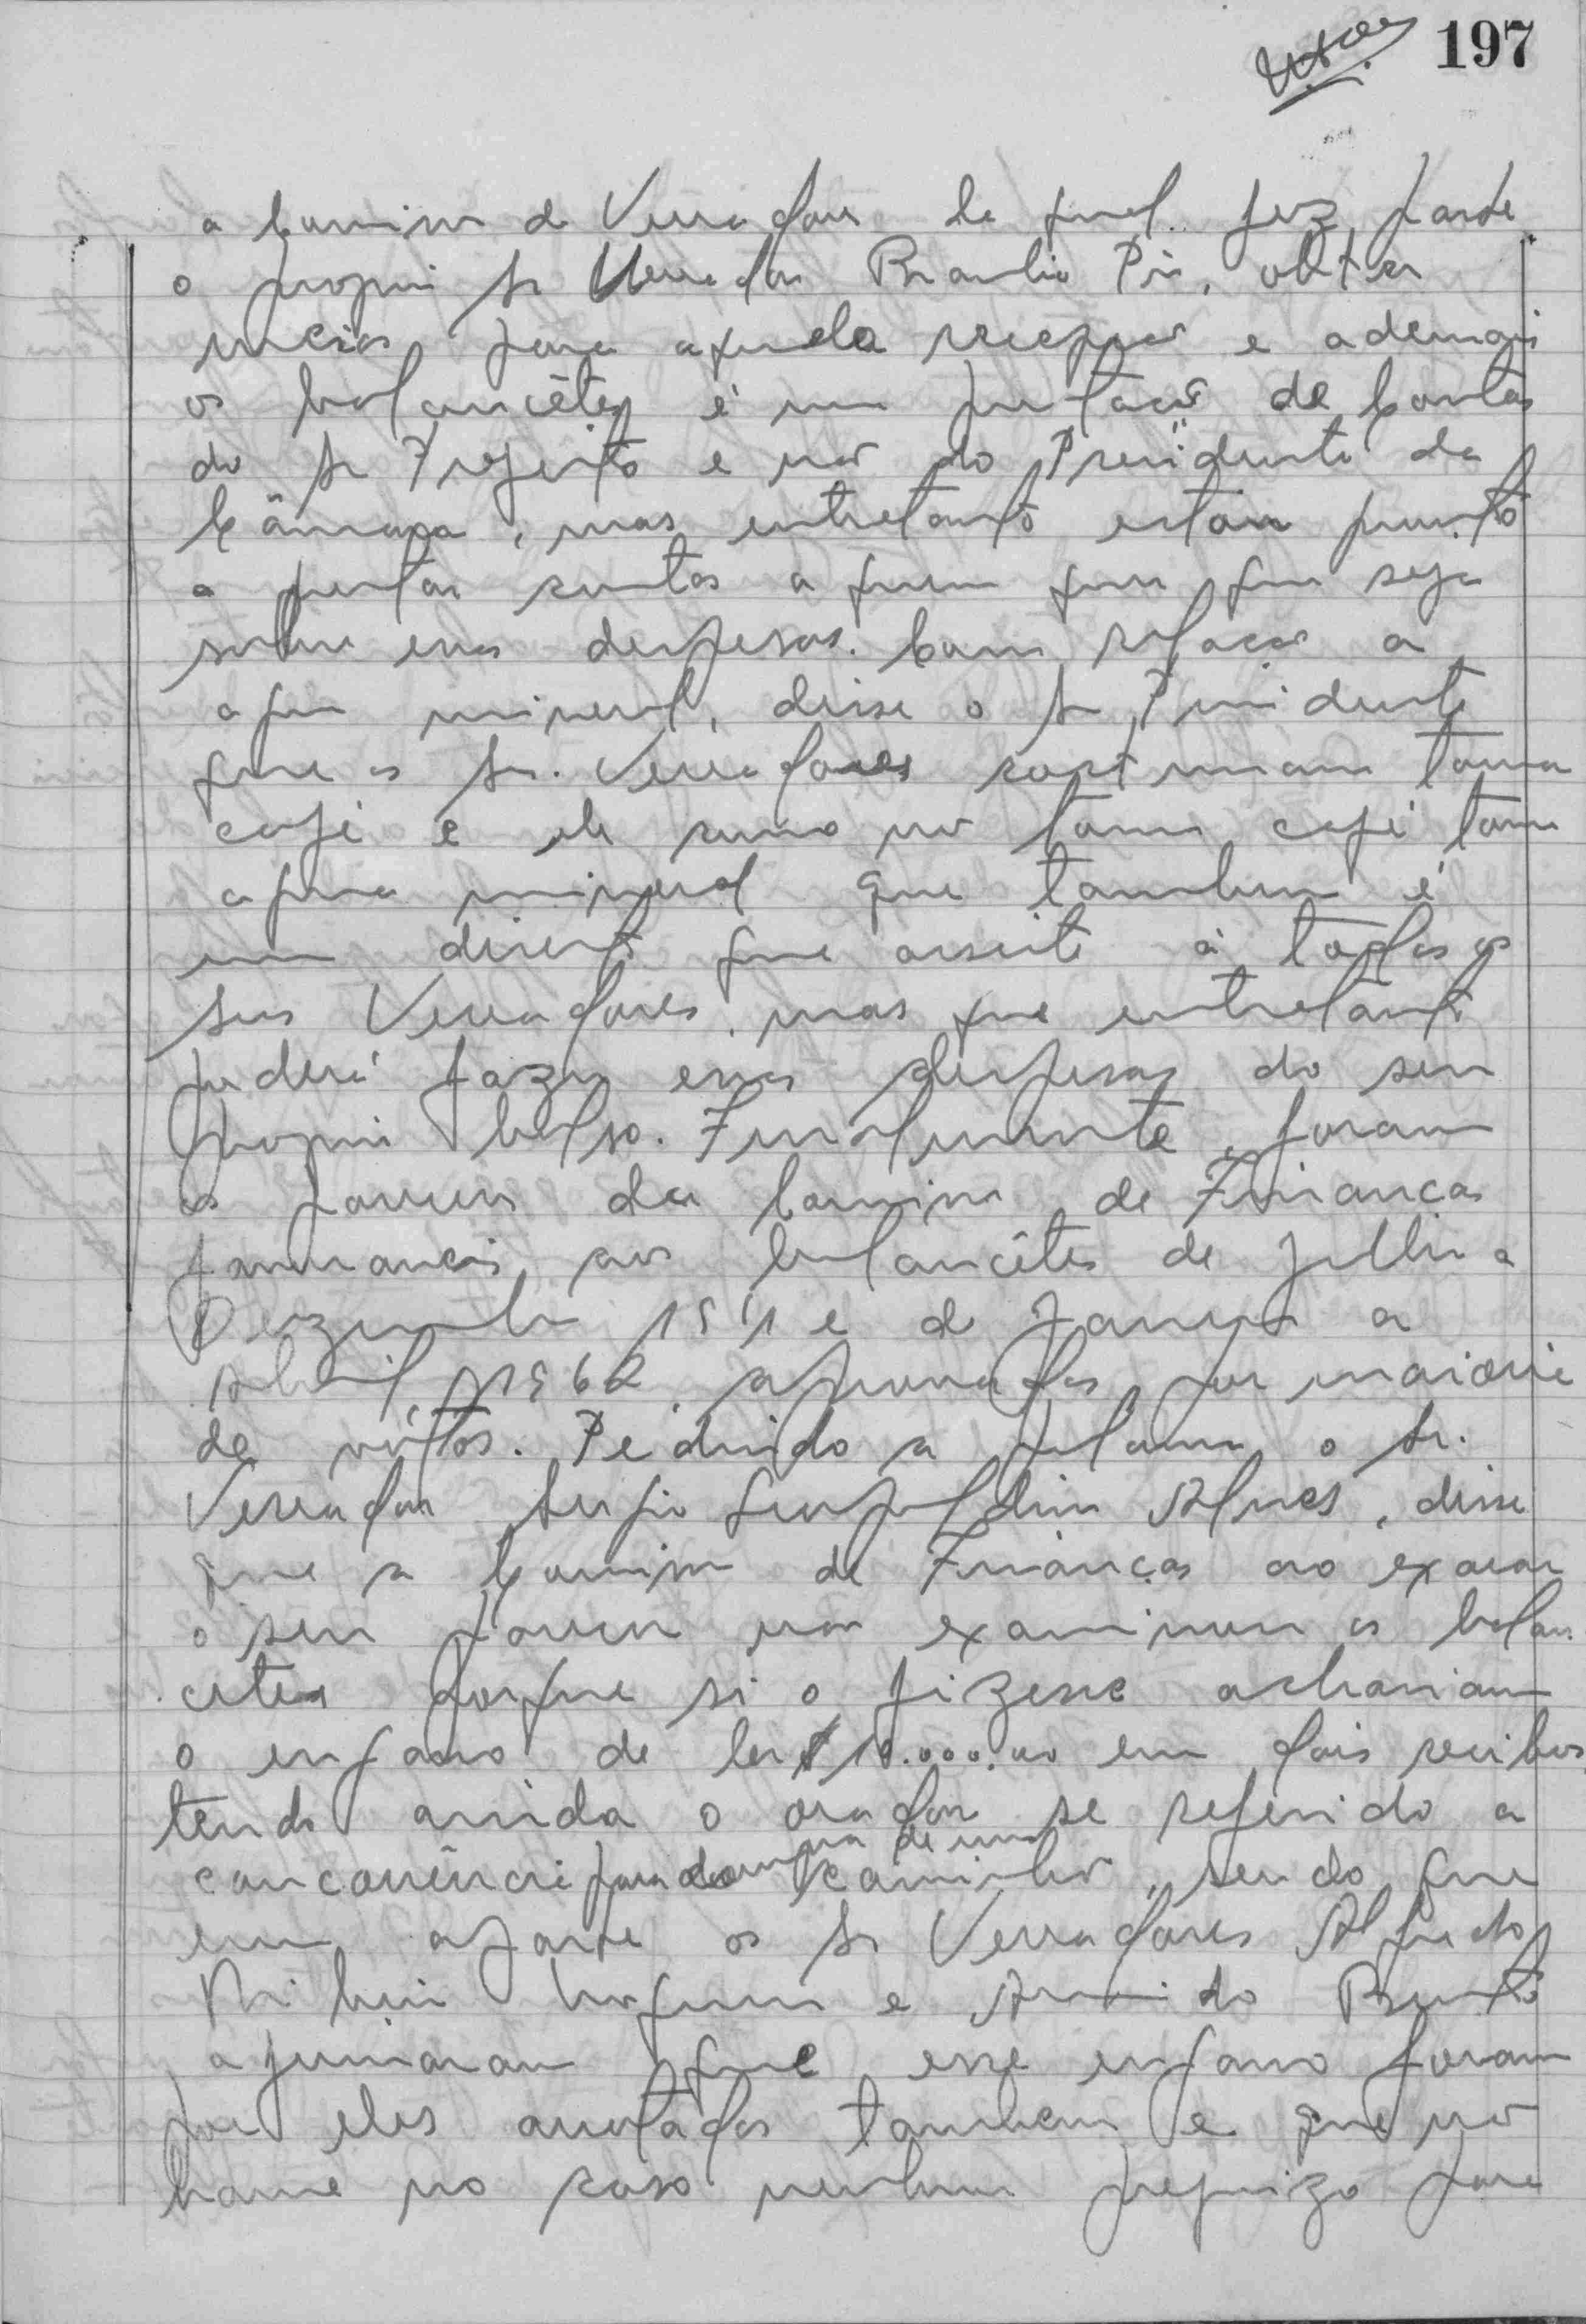 197
a Comissão de Vereadores da qual fez parte
o proprio Sr Vereador Braulio Pio, obter
meios para aquela recepção e ademais
os balancêtes é uma prestação de Contas
do Sr Prefeito e não do Presidente da
Câmara, mas entretanto estou pronto
a prestar contas a quem quer que seja
sobre essas despesas. Com relação a
agua mineral, disse o Sr Presidente
que os Srs. Vereadores costumam tomar
café e ele como não toma café toma
agua mineral que tambem é
um direito que assiste à todos os
Srs Vereadores, mas que entretanto
poderá fazer essas despesas do seu
proprio bolso. Finalmente, foram
os pareceres da Comissão de Finanças
favoraveis aos balancêtes de Julho a
Dezembro 1961 e de Janeiro a
Abril 1962, aprovados por maioria
de vótos. Pedindo a palavra o Sr.
Vereador Sergio Alves, disse
que a Comissão de Finanças ao exarar
o seu parecer não examinou os balan
cetes porque si o fizesse achariam
o engano de Cr$ 10.000,00 em dois recibos,
tendo ainda o orador se referido a
concorrência para compra de um caminhão, sendo que
em aparte os Srs Vereadores Alfredo
e Armindo Bento
afirmaram que esse engano foram
por eles anotados tambem e que não
houve no caso nenhum prejuizo para